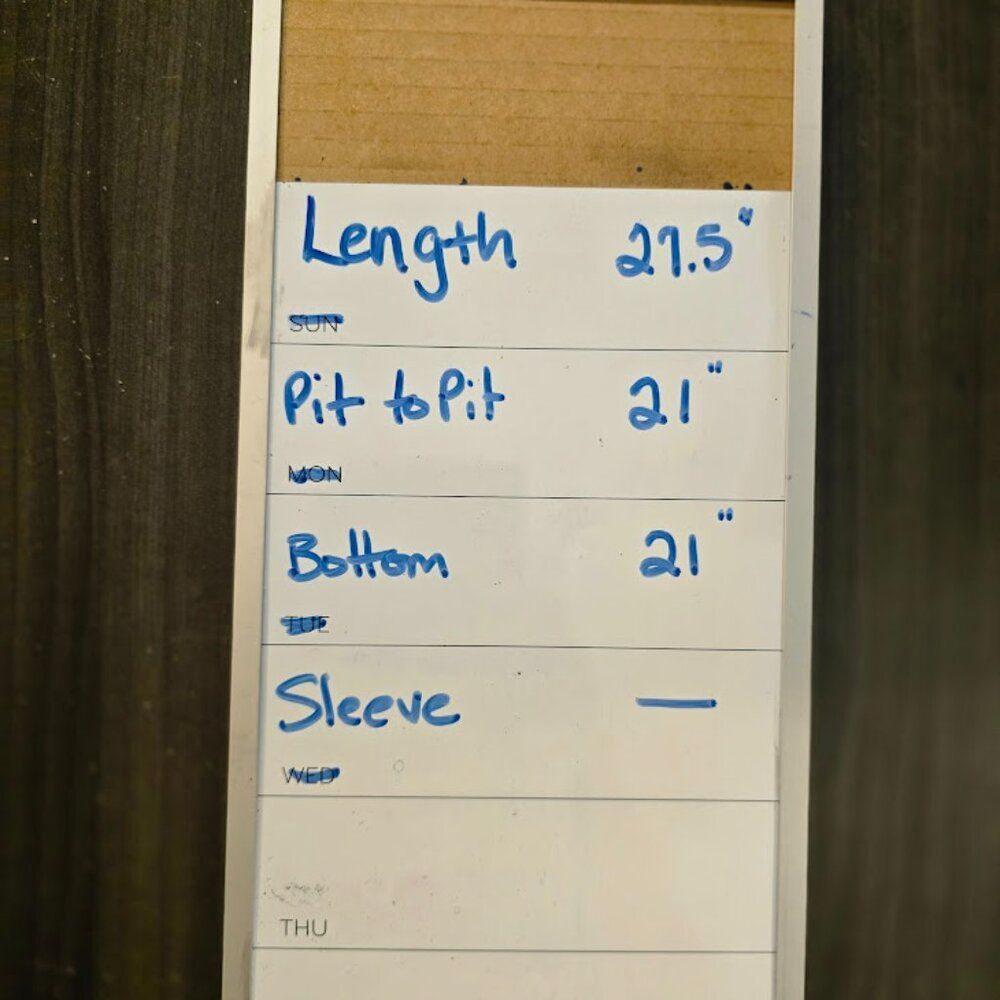 Length 27.5"
SUN
Pit to Pit 21"
MON
Bottom 21"
TUE
Sleeve —
WED
THU